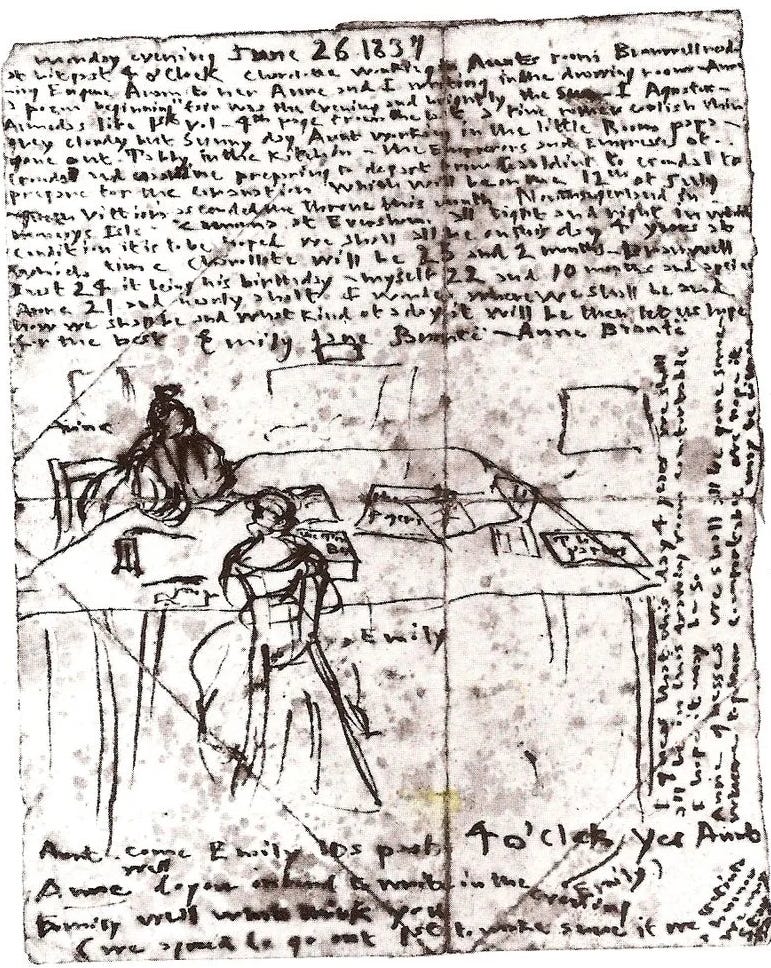 Monday evening June 26 1837
A bit past 4 o'Clock Charolotte working in Aunts room Branwell read-
ing Eugene Aram to her Anne and I writing in the drawing room - Anne
a poem beginning "fair was the Evening and brightly the Sun - I Agustus -
Almedas life 1st v. 1 - 4th page from the last a fine rather coolish thin
grey cloudy but Sunny day Aunt working in the little Room papa -
gone out. Tabby in the Kitchin - the Emperors and Empreses of
Gondal and Gaaldine preparing to depart from Gaaldine to Gondal to
prepare for the coronation which will be on the 12th of July
Queen Vittiora ascended the throne this month Northangerland in
Monceys Isle - Zamorna at Eversham. all tight and right in which
condition it is to be hoped we shall all be on this day 4 years at
which time Charollote will be 25 and 2 months - Branwell
just 24 it being his birthday - myself 22 and 10 months and a peice
Anne 21 and nearly a half I wonder where we shall be and
how we shall be and what kind of a day it will be then let us hope
for the best Emily Jane Brontë - Anne Brontë
Anne
The
papers
The
Emily
I guess that this day 4 years we shall
all be in this drawing room comfortable
I hope it may be so
Anne guesses we shall all be gone some
where together comfortable we hope it
may be
Aunt. come Emily Its past 4 o'Clock, Yes Aunt
Anne well do you intend to write in the evening
Emily well what think you
(we agreed to go out 1st to make sure if we